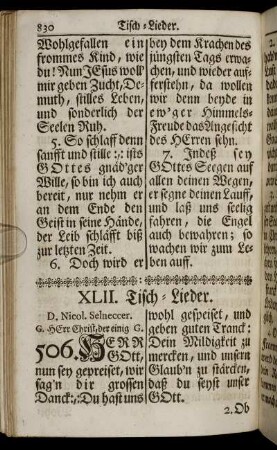 830 Tisch-Lieder.
Wohlgefallen ein
frommes Kind, wie
du! Nun JEsus woll
mir geben Zucht, De-
muth, stilles Leben,
und sonderlich der
Seelen Ruh.
5. So schlaff denn
sanfft und stille :,: ists
GOttes gnäd'ger
Wille, so bin ich auch
bereit, nur nehm er
an dem Ende den
Geist in seine Hände,
der Leib schläfft biß
zur letzten Zeit.
6. Doch wird er
bey dem Krachen des
jüngsten Tags erwa-
chen, und wieder auff-
ferstehn, da wollen
wir denn beyde in
ew'ger Himmels-
Freude das Angesicht
des HErren sehn.
7. Indeß sey
GOttes Seegen auf
allen deinen Wegen,
er segne deinen Lauff,
und laß uns seelig
fahren, die Engel
auch bewahren; so
wachen wir zum Le-
ben auff.
XLII. Tisch-Lieder.
D. Nicol. Selneccer.
G. HErr Christ, der einig G.
506. HERR
GOtt,
nun sey gepreiset, wir
sag'n dir grossen
Danck:,: Du hast uns
wohl gespeiset, und
geben guten Tranck:
Dein Mildigkeit zu
mercken, und unsern
Glaub'n zu stärcken,
daß du seyst unser
GOtt.
2. Ob